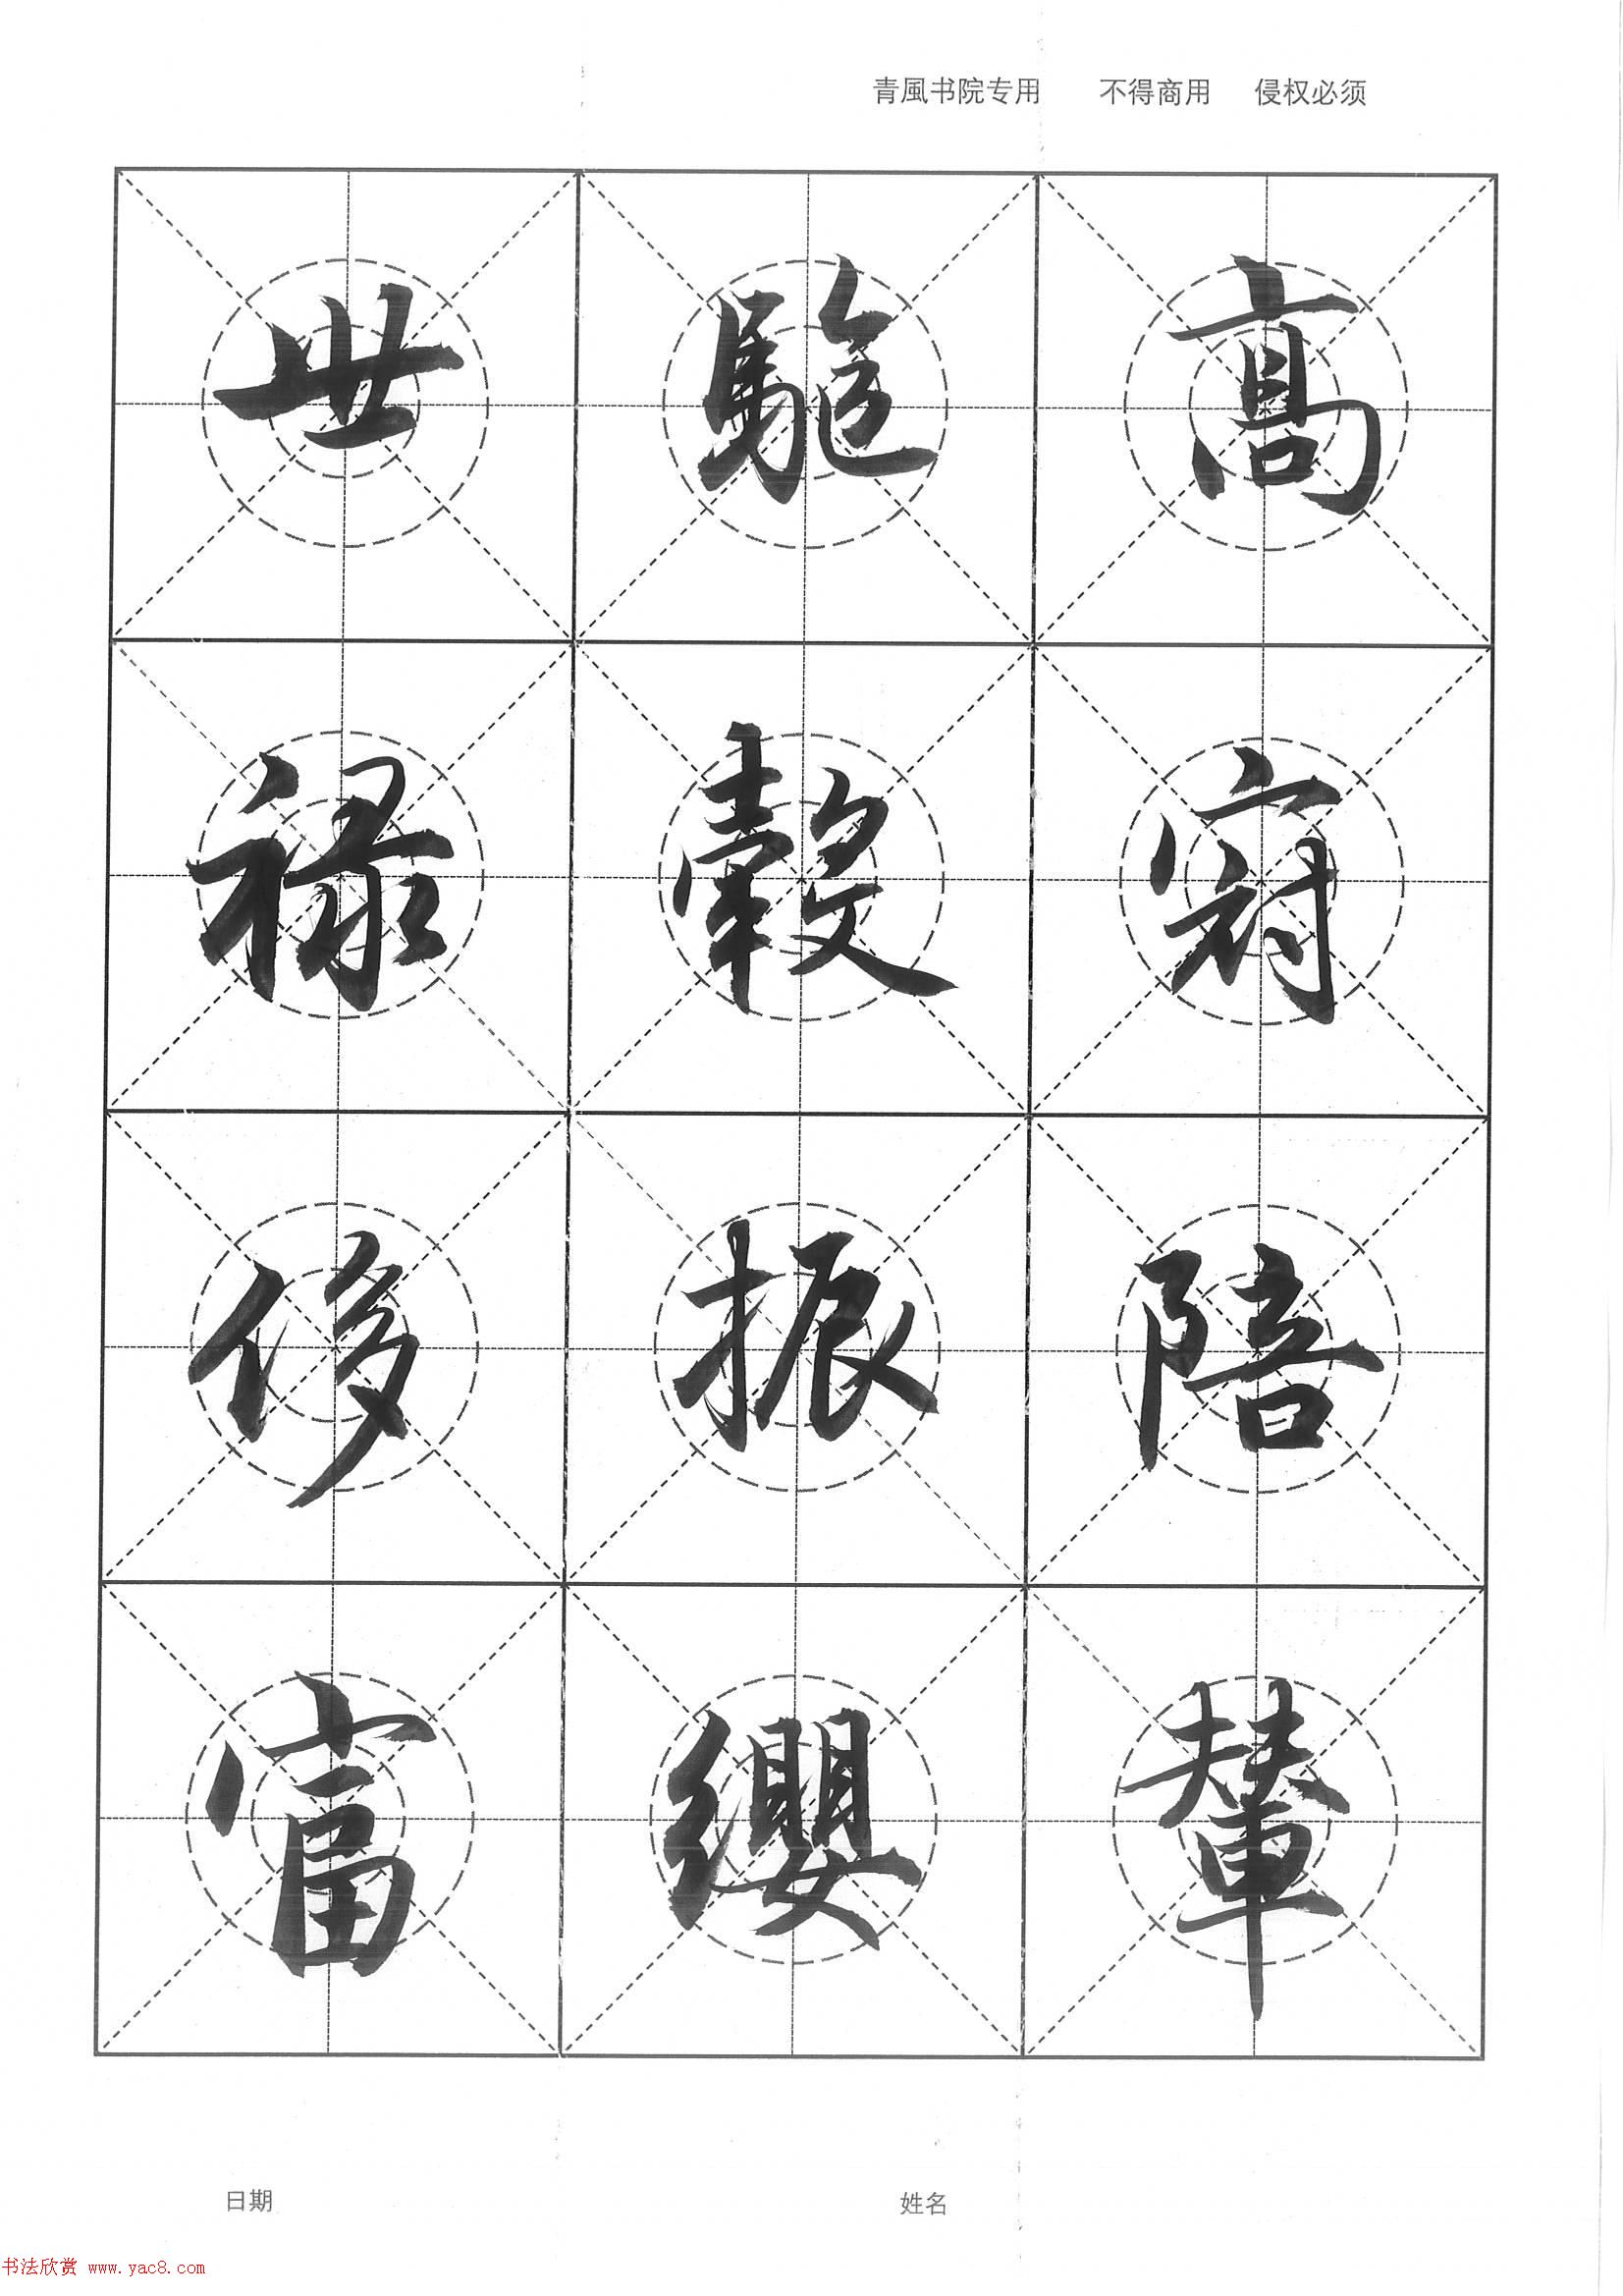 青風书院专用 不得商用 侵权必须
高冠陪輦
驅轂振纓
世祿侈富
日期 姓名
书法欣赏 www.yac8.com